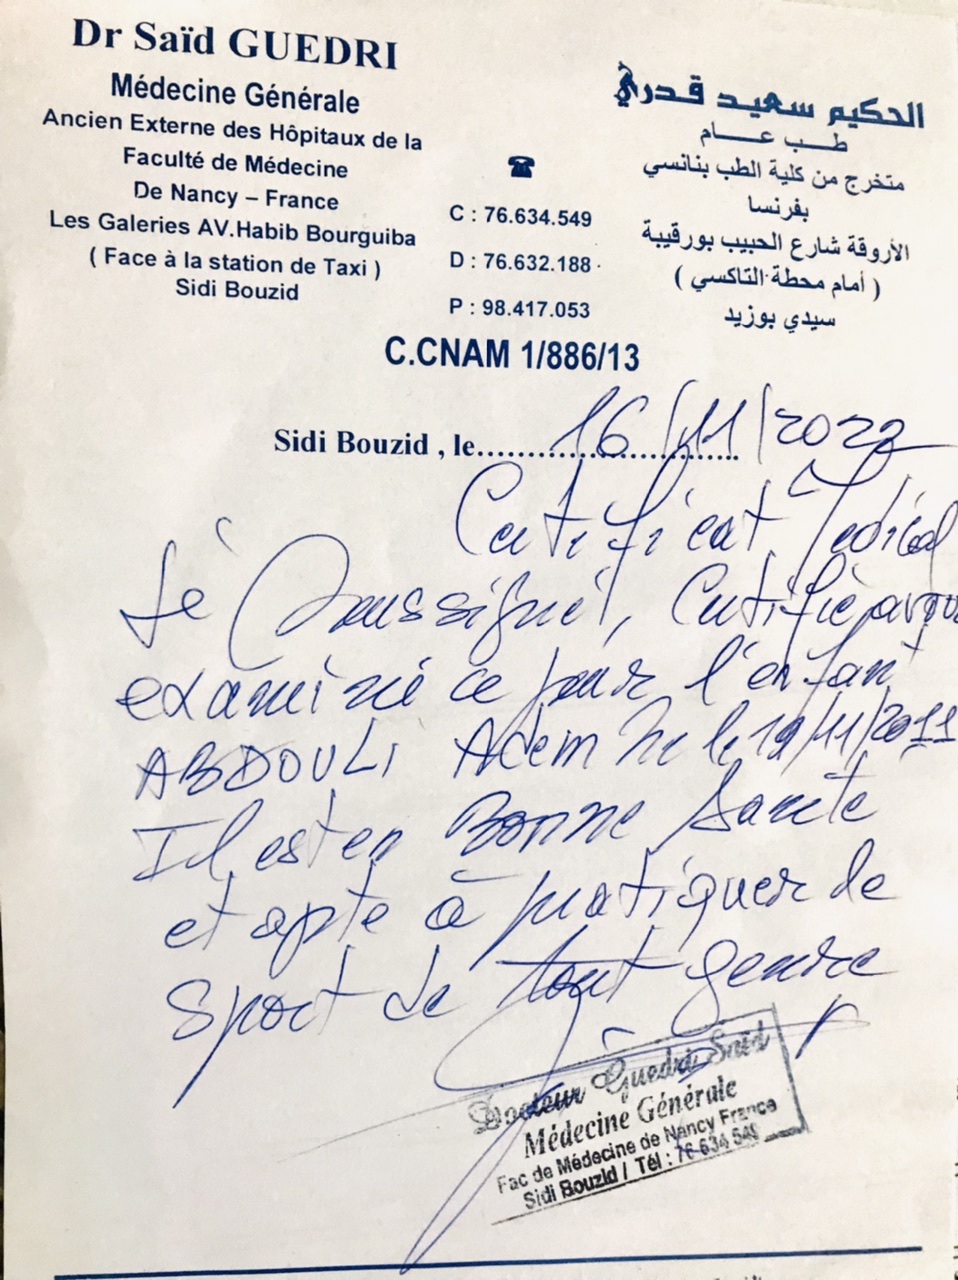 Dr Saïd GUEDRI
Médecine Générale
Ancien Externe des Hôpitaux de la
Faculté de Médecine
De Nancy – France
Les Galeries AV.Habib Bourguiba
( Face à la station de Taxi )
Sidi Bouzid
☎
C : 76.634.549
D : 76.632.188
P : 98.417.053
الحكيم سعيد قدري
طـــب عـــــام
متخرج من كلية الطب بنانسي
بفرنسا
الأروقة شارع الحبيب بورقيبة
( أمام محطة التاكسي )
سيدي بوزيد
C.CNAM 1/886/13
Sidi Bouzid , le.......... 16/11/2022
Certificat Medical
Je Soussigné, Certifie avoir
examiné ce jour l'enfant
ABDOULI Adem Né le 19/11/2011
Il est en Bonne Santé
et apte à pratiquer de
Sport de tout genre
Docteur Guedri Saïd
Médecine Générale
Fac de Médecine de Nancy France
Sidi Bouzid / Tél : 76 634 549